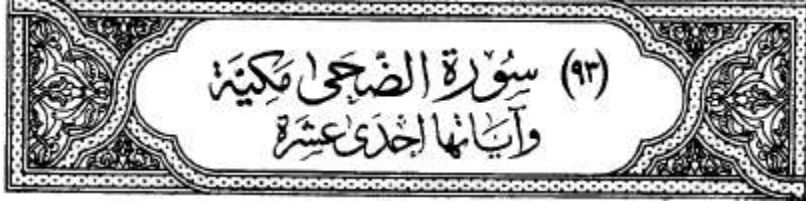 (٩٣) سُوْرَة الضّحىٰ مَكيّة
وَآيَاتها اِحْدَىٰ عَشرَة